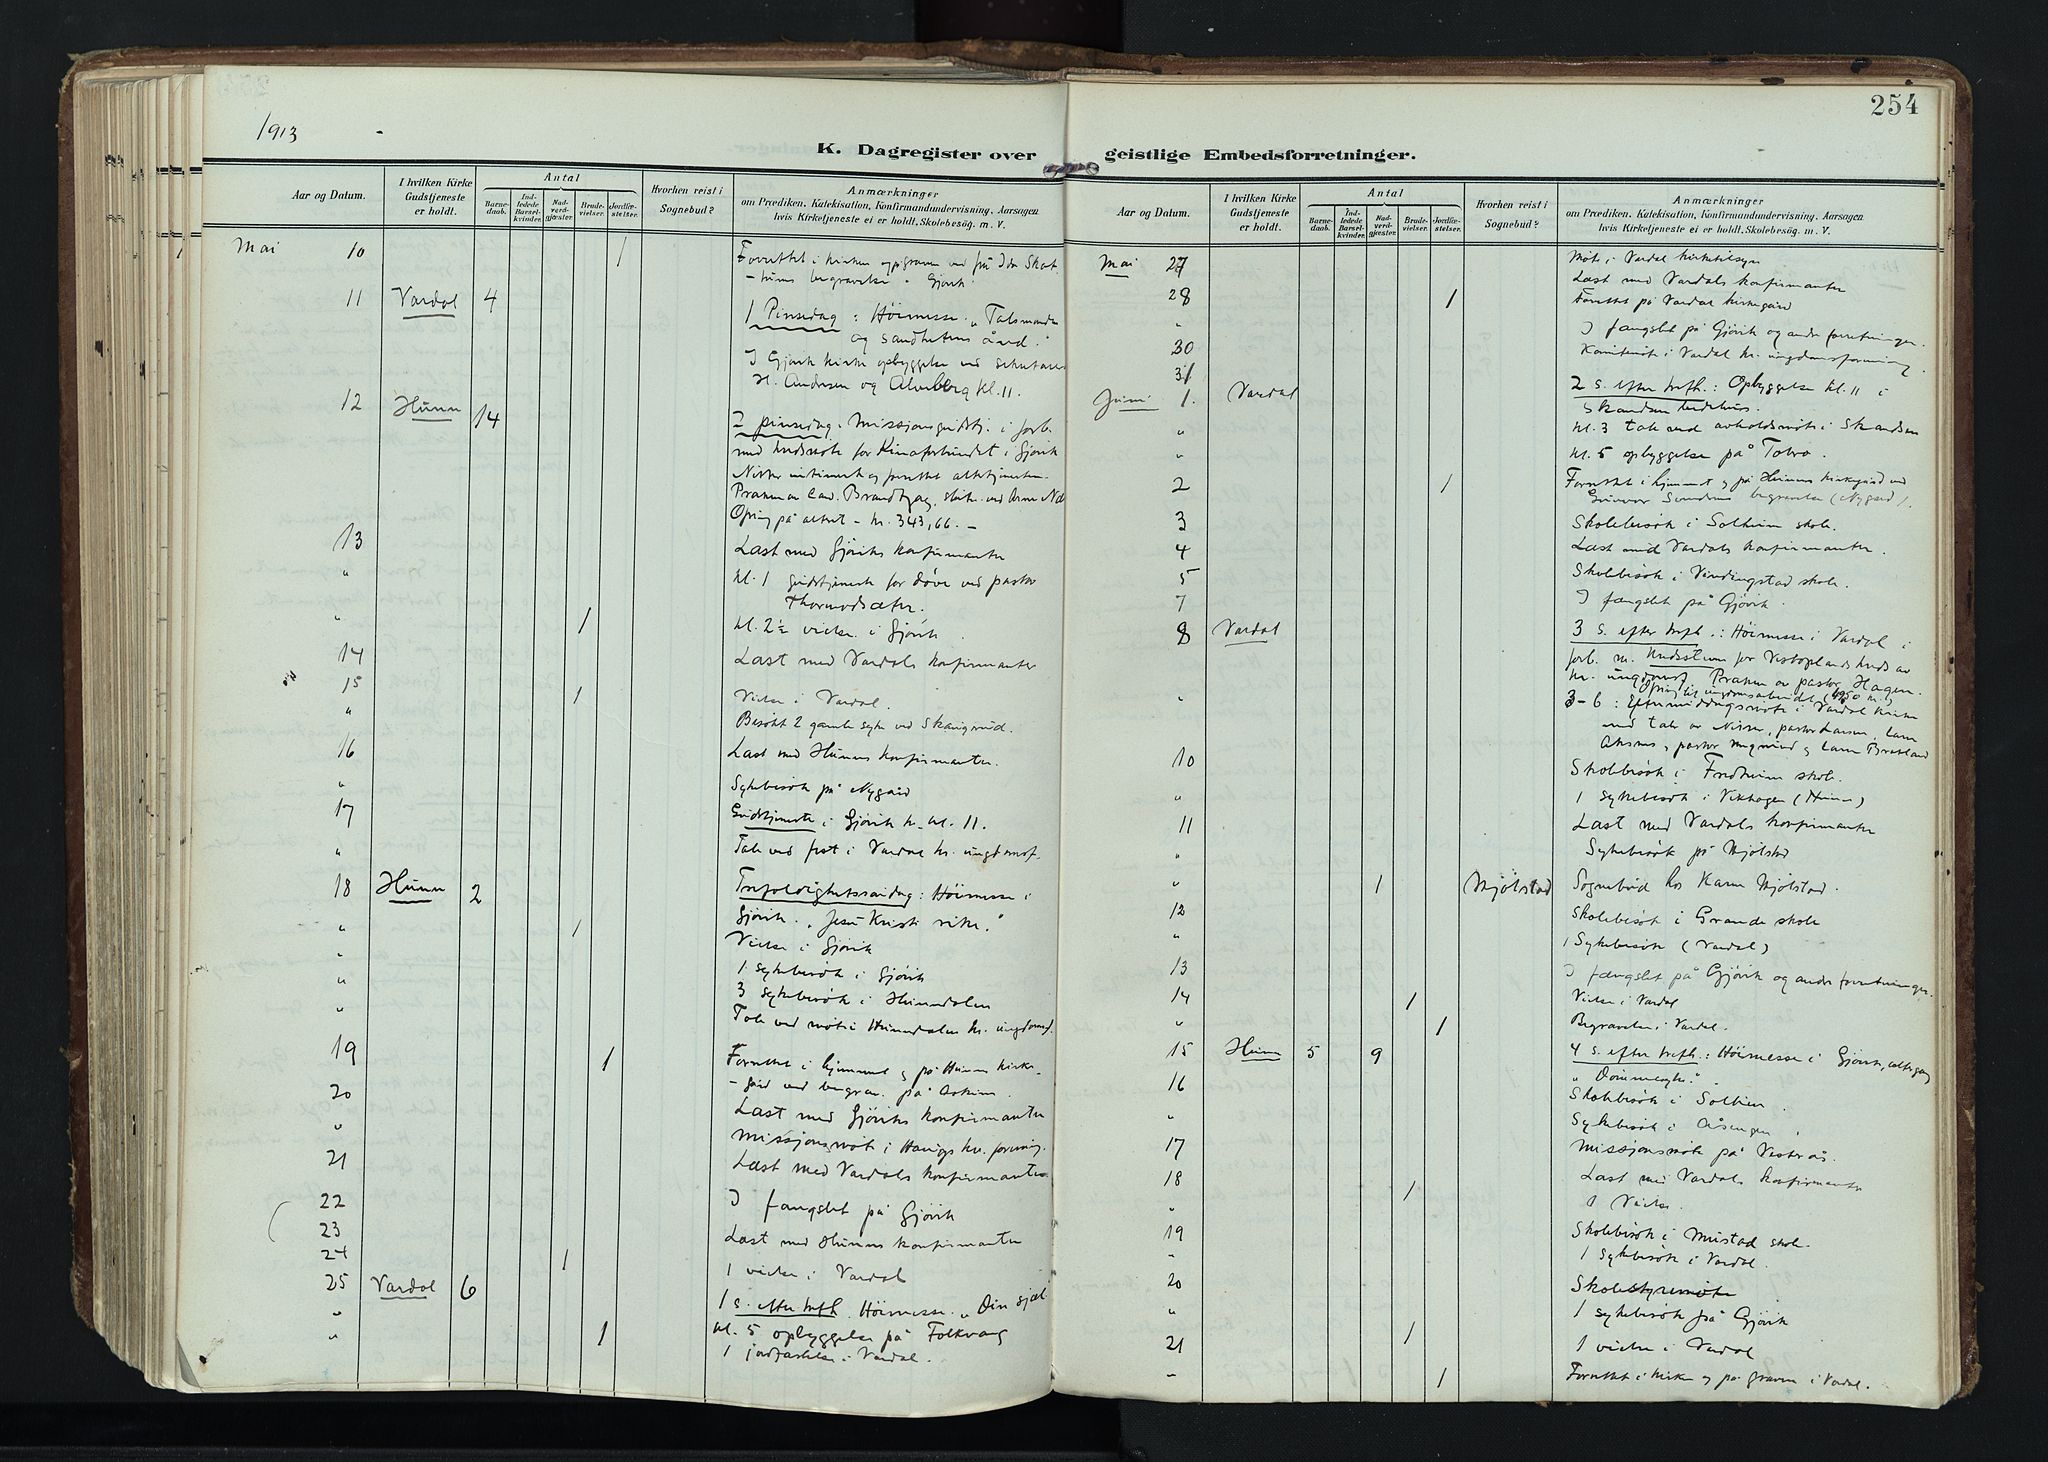 254
1913
K. Dagregister over geistlige Embedsforretninger.
Aar og Datum.
I hvilken Kirke Gudstjeneste er holdt.
Antal
Barnedaab.
Indledede Barselkvinder.
Nadverdgjæster.
Brudevielser.
Jordfæstelser.
Hvorhen reist i Sognebud?
Anmærkninger
om Prædiken, Katekisation, Konfirmandundervisning, Aarsagen
hvis Kirketjeneste ei er holdt, Skolebesög, m. V.
Mai 10 1 Forrettet i kirken og graven ved
begravelse i Gjövik.
11 Vardal 4 1 Pinsedag: Höimesse. "Talsmanden
og sandhetens ånd."
I Gjövik kirke opbyggelse ved sekretær
H. Andersen og Alveberg kl. 11.
12 Hunn 14 2 pinsedag. Missjonsgudstj. i forb.
med kredsmöte for Kinaforbundet i Gjövik
Ofring på altret - kr. 343,66. -
13 Læst med Gjöviks konfirmanter
" kl. 1 gudstjeneste for döve ved pastor
Thormodsæter.
" 1 kl. 2½ vielse i Gjövik.
14 Læst med Vardals konfirmanter
15 1 Vielse i Vardal.
" Besökt 2 gamle syke ved
16 Læst med Hunns konfirmanter.
" Sykebesök på Nygård
17 Gudstjeneste i Gjövik k. kl. 11.
" Tale ved fest i Vardal kr. ungdomsf.
18 Hunn 2 Trefoldighetssöndag: Höimesse i
Gjövik. "Jesu Kristi rike."
" 1 Vielse i Gjövik
" 1 sykebesök i Gjövik
" 3 sykebesök i Hunndalen
" Tale ved möte i Hunndalen kr. ungdomsf.
19 1 Forrettet i hjemmet og på Hunns kirke-
gård ved begrav. på
20 Læst med Gjöviks konfirmanter
" Missjonsmöte i kv. forening.
21 Læst med Vardals konfirmanter
22 I fængslet på Gjövik
23 Læst med Hunns konfirmanter
24 1 1 vielse i Vardal
25 Vardal 6 1 s. efter trefh. Höimesse. "Din sjæl
" kl. 5 opbyggelse på Folkvang
" 1 1 jordfæstelse i Vardal.
Aar og Datum.
I hvilken Kirke Gudstjeneste er holdt.
Antal
Barnedaab.
Indledede Barselkvinder.
Nadverdgjæster.
Brudevielser.
Jordfæstelser.
Hvorhen reist i Sognebud?
Anmærkninger
om Prædiken, Katekisation, Konfirmandundervisning, Aarsagen
hvis Kirketjeneste ei er holdt, Skolebesög, m. V.
Mai 27 Möt i Vardal kirketilsyn
28 Læst med Vardals konfirmanter
" 1 Forrettet på Vardal kirkegård
30 I fængslet på Gjövik og andre forretninger.
31 Komitemöte i Vardal kr. ungdomsforening.
Juni 1. Vardal 2 s. efter trefh.: Opbyggelse kl. 11 i
Skandsen bedehus.
" kl. 3 tale ved avholdsmöte i Skandsen
" kl. 5 opbyggelse på Tobro.
2 1 Forrettet i hjemmet og på Hunns kirkegård ved
begravelse (Nygård).
3 Skolebesök i Solheim skole.
4 Læst med Vardals konfirmanter.
5 Skolebesök i Vindingstad skole.
7 I fængslet på Gjövik.
8 Vardal 3 s. efter trefh.: Höimesse i Vardal i
forb. m. kredsstevne for Vestoplands kreds av
kr. ungdomsf. Præken av pastor Hagen.
" 3-6: Eftermiddagsmöte i Vardal kirke
10 Skolebesök i Fredheim skole.
" 1 sykebesök i Vikhagen (Hunn)
11 Læst med Vardals konfirmanter
" Sykebesök på Mjölstad
" 1 Mjölstad Sognebud hos Karen Mjölstad.
12 Skolebesök i Grande skole
" 1 Sykebesök (Vardal)
13 I fængslet på Gjövik og andre forretninger.
14 1 Vielse i Vardal
" 1 Begravelse i Vardal.
15 Hunn 5 9 4 s. efter trefh.: Höimesse i Gjövik, altergang
16 Skolebesök i Solheim.
" Sykebesök i Åsengen.
17 Missjonsmöte på Vesterås.
18 Læst med Vardals konfirmanter
" 1 1 Vielse.
19 Skolebesök i Mustad skole.
" 1 Sykebesök i Vardal.
20 Skolestyremöte
" 1 sykebesök på Gjövik
21 1 1 vielse i Vardal
" 1 Forrettet i kirken og på graven i Vardal.